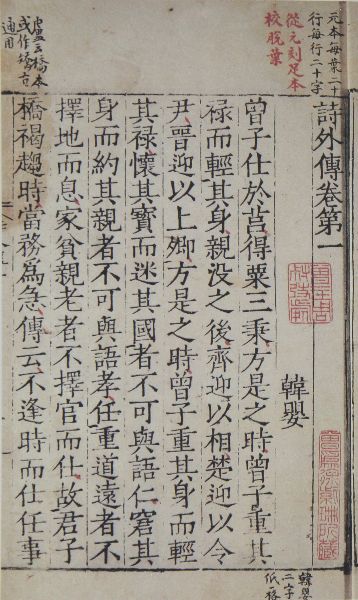 元本每葉二十
行每行二十字
從元刻足本
校脫葉
盧云橋本
或作撟古
通用
詩外傳卷第一
韓嬰
曾子仕於莒得粟三乘方是之時曾子重其
禄而輕其身親没之後齊迎以相楚迎以令
尹晉迎以上卿方是之時曾子重其身而輕
其禄懷其寳而迷其國者不可與語仁窘其
身而約其親者不可與語孝任重道遠者不
擇地而息家貧親老者不擇官而仕故君子
橋褐趨時當務爲急傳云不逢時而仕任事
韓嬰
二字